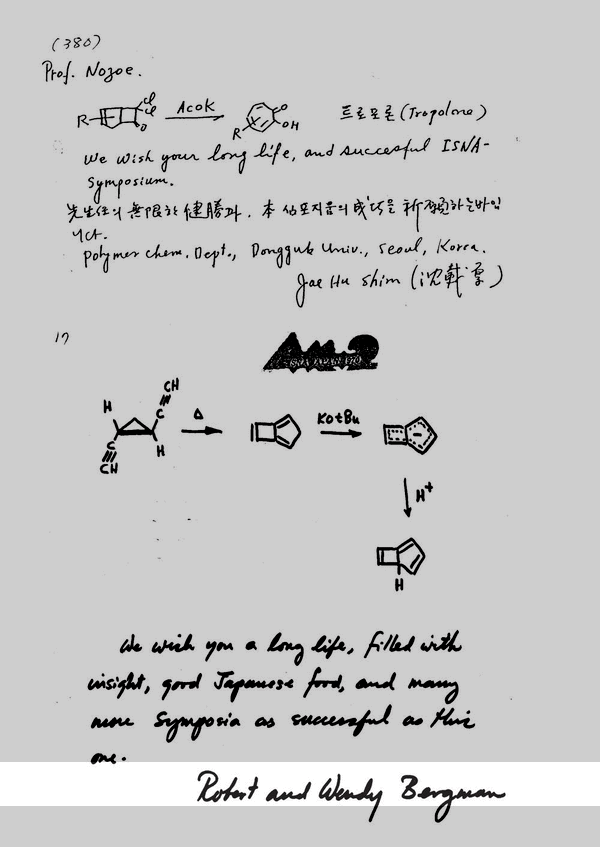 (380)
Prof. Nozoe.
R Cl Cl O AcOK R O OH 트로포론 (Tropolone)
We wish your long life, and succesful ISNA-
Symposium.
先生任의 無限한 健勝과, 本 심포지움의 成功을 祈願하는바입
니다.
Polymer Chem. Dept., Dongguk Univ., Seoul, Korea.
Jae Hu Shim (沈載厚)
17
H C CH Δ KOtBu
C CH H
H+
H
We wish you a long life, filled with
insight, good Japanese food, and many
more Symposia as successful as this
one.
Robert and Wendy Bergman